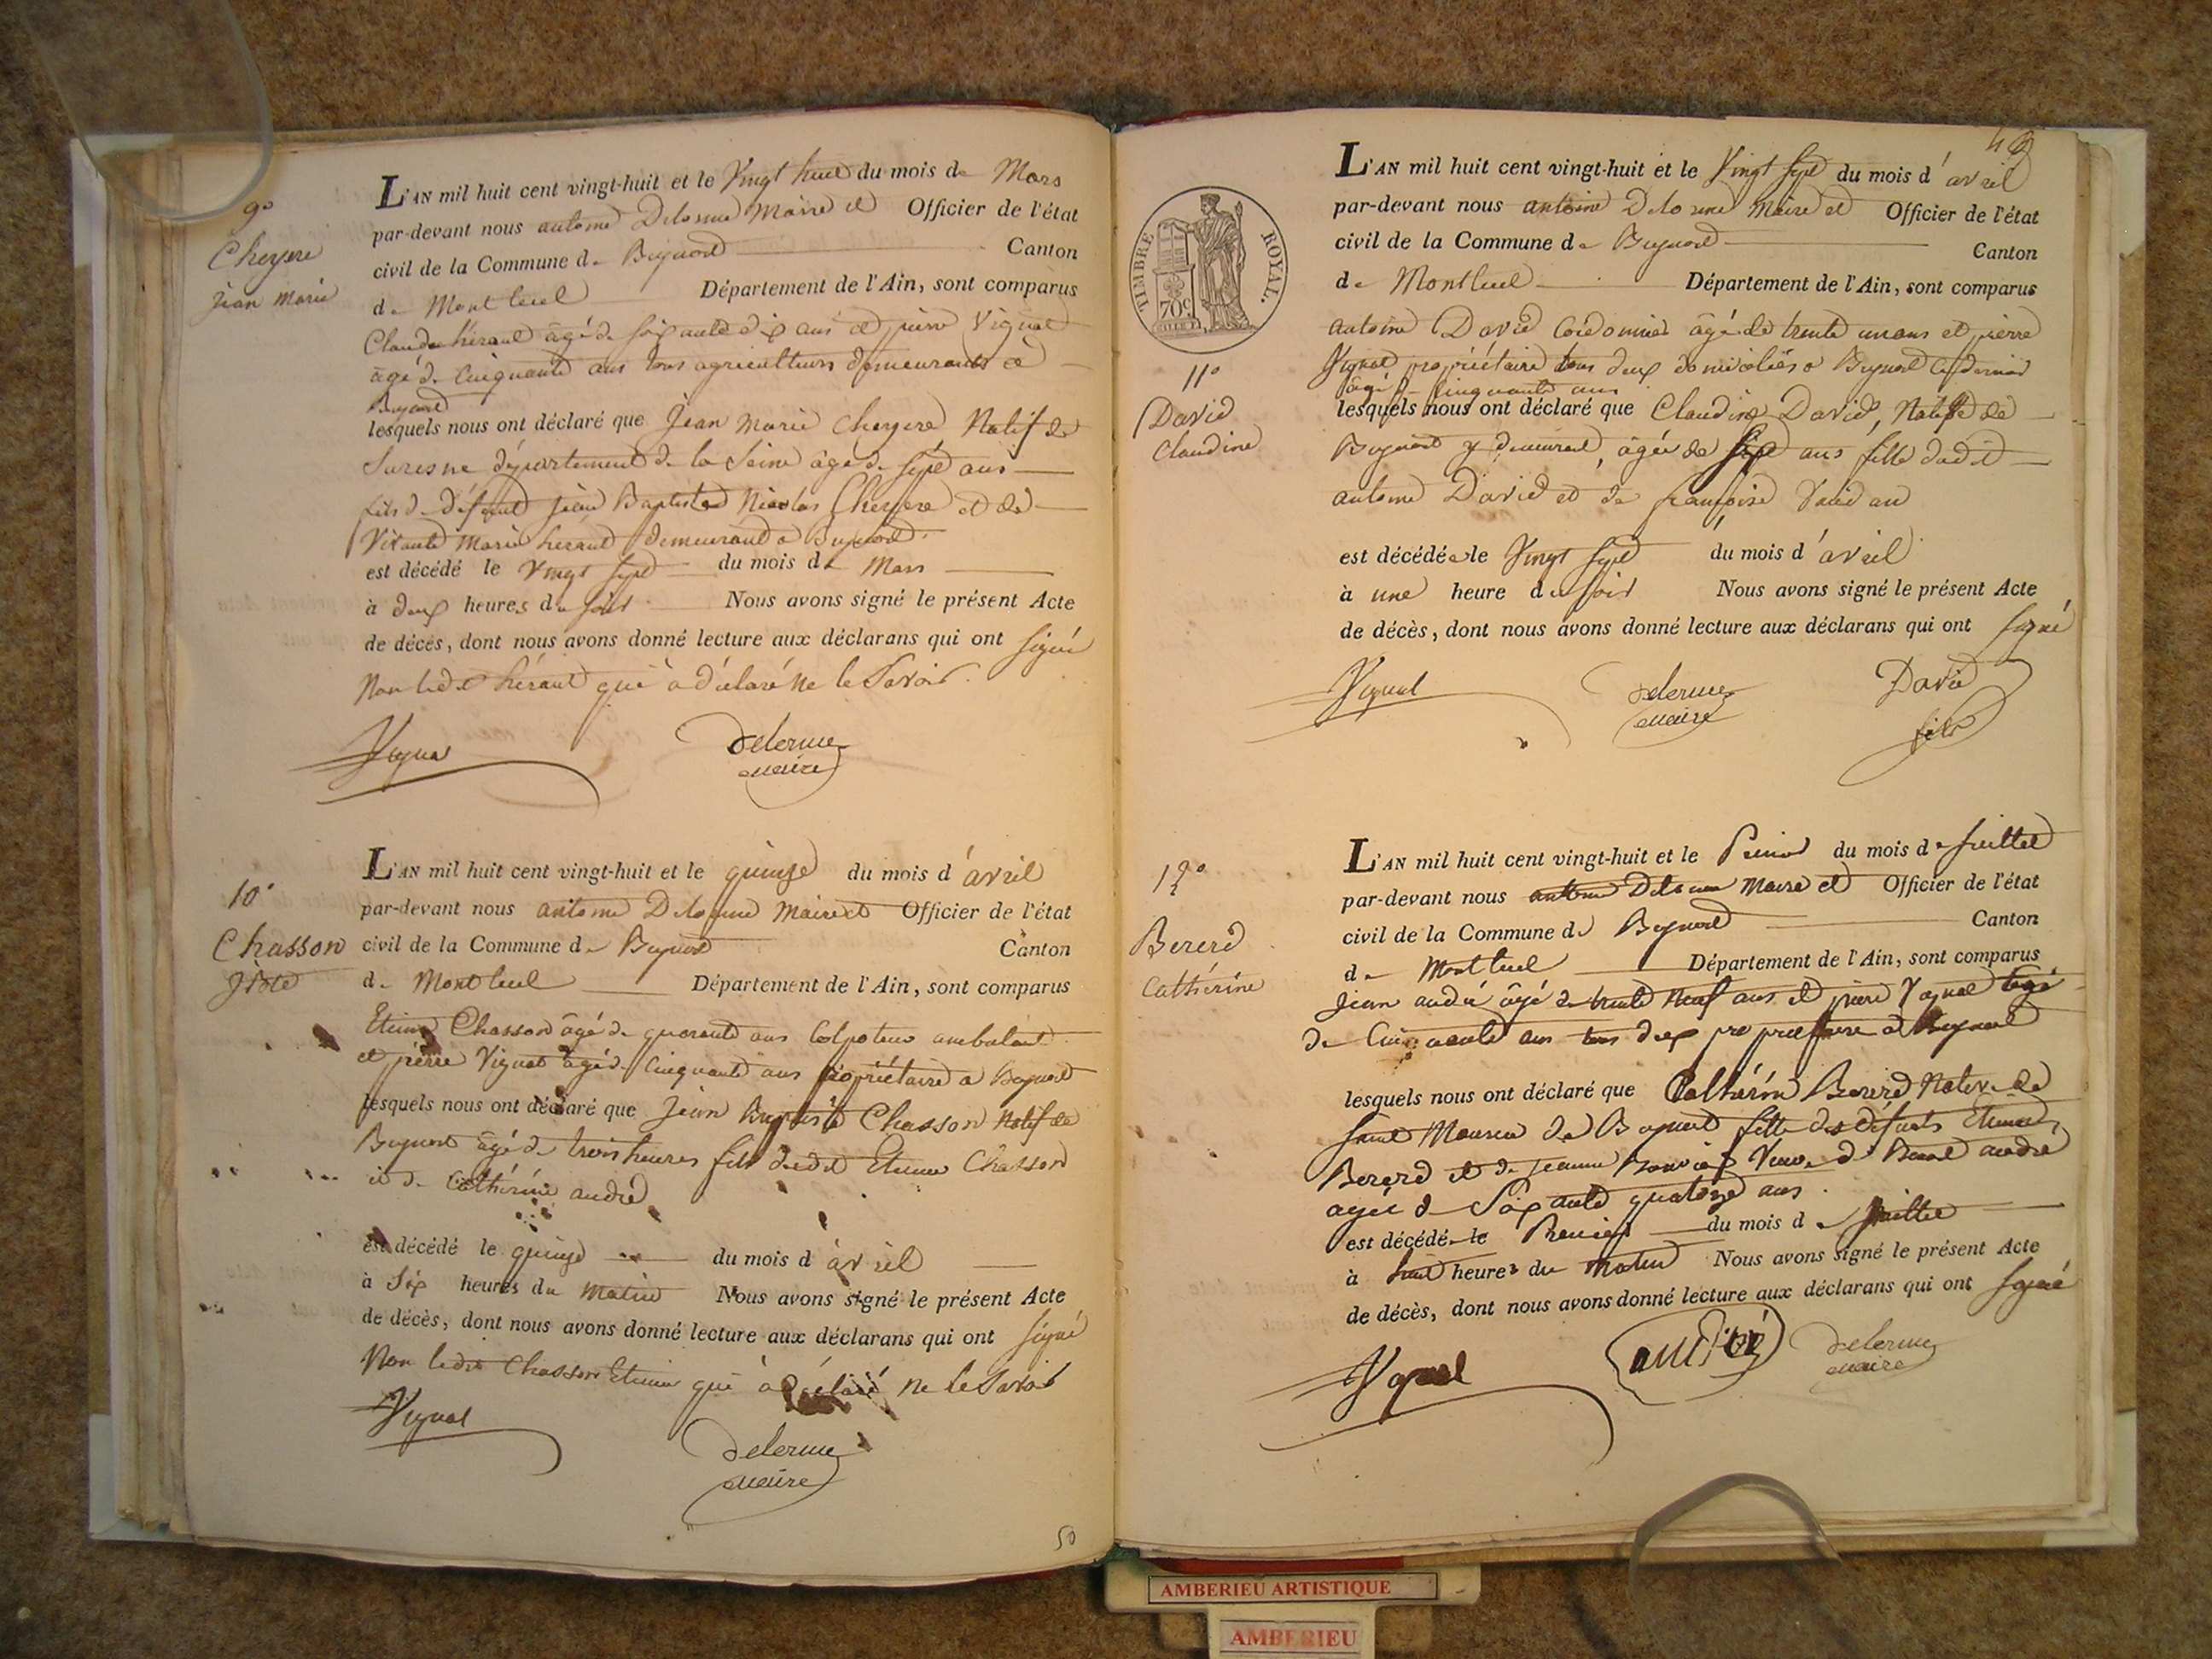 9°
Cheyere
jean marie
L'AN mil huit cent vingt-huit et le Vingt huit du mois de Mars
par-devant nous antoine Delorme Maire et Officier de l'état
civil de la Commune de Beynost Canton
de Montluel Département de l'Ain, sont comparus
Claude héraut âgé de soixante dix ans et pierre Vignat
âgé de Cinquante ans tous agriculteurs demeurants à
Beynost
lesquels nous ont déclaré que Jean Marie Cheyere Natif de
Suresne département de la Seine âgé de sept ans
fils de défunt jean Baptiste Nicolas Cheyere et de
Vivante Marie héraut demeurant a Beynost
est décédé le Vingt sept du mois de Mars
à deux heures du soir Nous avons signé le présent Acte
de décès, dont nous avons donné lecture aux déclarans qui ont signé
Non ledit héraut qui à déclaré ne le Savoir.
Vignat
Delorme
maire
10°
Chasson
L'AN mil huit cent vingt-huit et le quinze du mois d'avril
par-devant nous antoine Delorme Maire et Officier de l'état
civil de la Commune de Beynost Canton
de Montluel Département de l'Ain, sont comparus
Etienne Chasson âgé de quarante ans Colpoteur ambulant
et pierre Vignat âgé de Cinquante ans propriétaire a Beynost
lesquels nous ont déclaré que Jean Baptiste Chasson Natif de
Beynost âgé de trois heures fils dudit Etienne Chasson
et de Cathérine andré
est décédé le quinze du mois d'avril
à Six heures du matin Nous avons signé le présent Acte
de décès, dont nous avons donné lecture aux déclarans qui ont signé
Non ledit Chasson Etienne qui à déclaré ne le Savoir
Vignat
Delorme
maire
50
49
TIMBRE ROYAL.
70c
11°
David
Claudine
L'AN mil huit cent vingt-huit et le Vingt sept du mois d'avril
par-devant nous antoine Delorme Maire et Officier de l'état
civil de la Commune de Beynost Canton
de Montluel Département de l'Ain, sont comparus
antoine David Cordonnier âgé de trente un ans et pierre
Vignat propriétaire tous deux domiciliés a Beynost Ce dernier
âgé de Cinquante ans
lesquels nous ont déclaré que Claudine David, Native de
Beynost y demeurant, âgée de sept ans fille dudit
antoine David et de françoise
est décédée le Vingt sept du mois d'avril
à une heure du soir Nous avons signé le présent Acte
de décès, dont nous avons donné lecture aux déclarans qui ont signé
Vignat
Delorme
maire
David
fils
12°
Bererd
Cathérine
L'AN mil huit cent vingt-huit et le Premier du mois de juillet
par-devant nous antoine Delorme Maire et Officier de l'état
civil de la Commune de Beynost Canton
de Montluel Département de l'Ain, sont comparus
Jean andré âgé de trente Neuf ans et pierre Vignat âgé
de Cinquante ans tous deux propriétaire a Beynost
lesquels nous ont déclaré que Cathérine Bererd Native de
Saint Maurice de Beynost fille des défunts Etienne
Bererd et de jeanne Veuve de andré
agée de Soixante quatorze ans.
est décédée le Premier du mois de juillet
à huit heures du matin Nous avons signé le présent Acte
de décès, dont nous avons donné lecture aux déclarans qui ont signé
Vignat
andré
Delorme
maire
AMBERIEU ARTISTIQUE
AMBERIEU